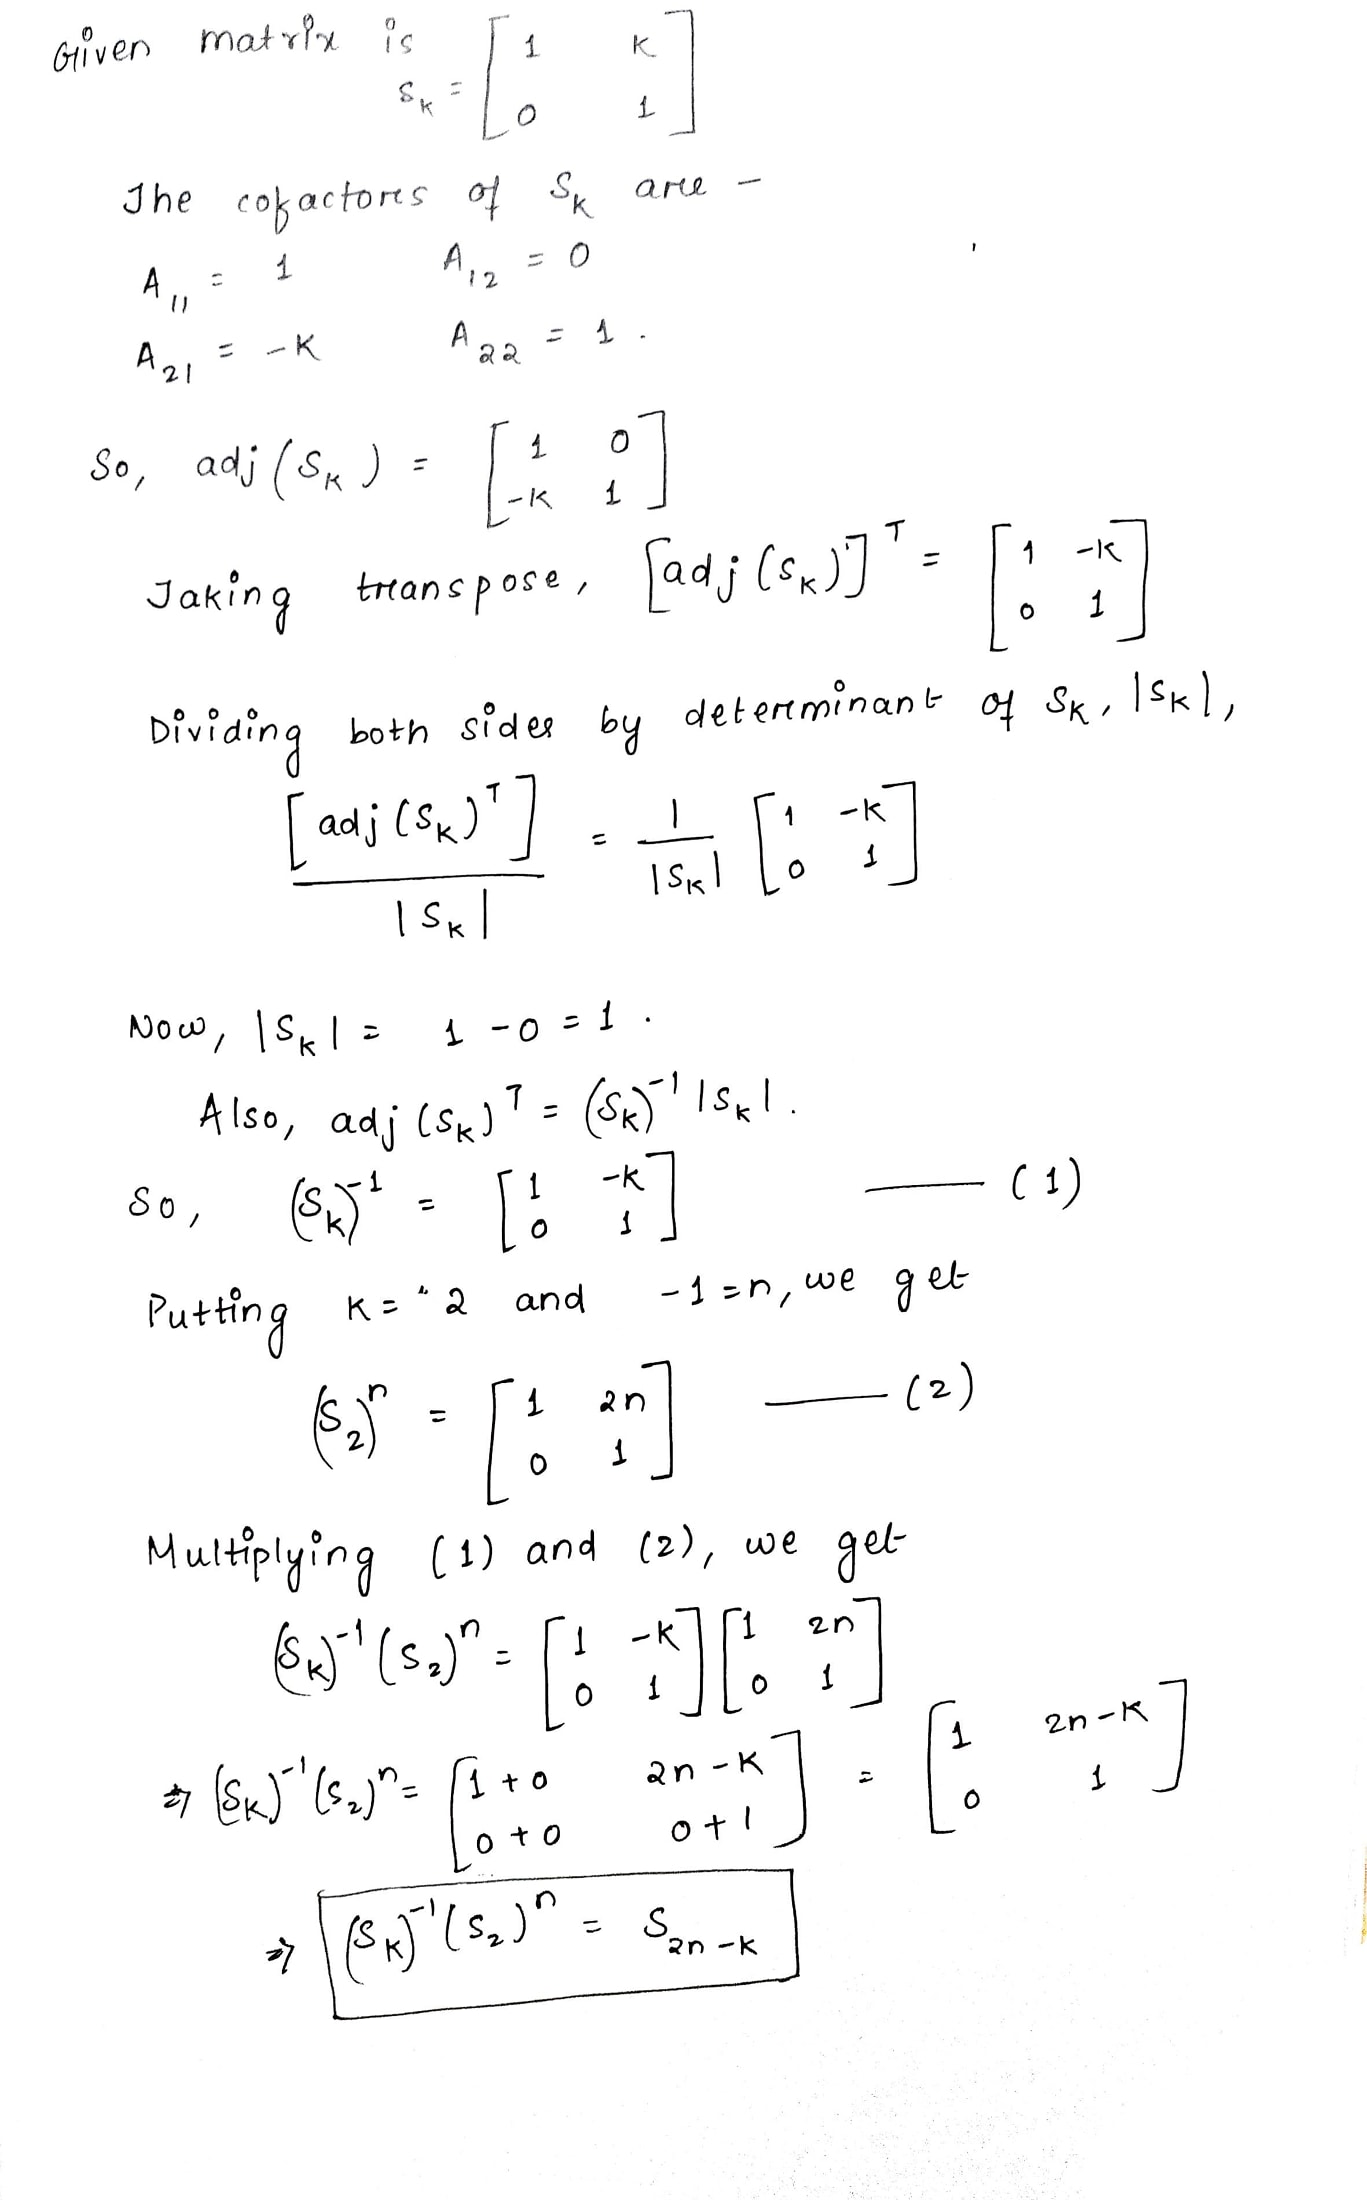 Given matrix is
S_K = [ 1 K ; 0 1 ]
The cofactores of S_K are –
A_11 = 1 A_12 = 0
A_21 = -K A_22 = 1 .
So, adj (S_K) = [ 1 0 ; -K 1 ]
Taking transpose, [adj (S_K)]^T = [ 1 -K ; 0 1 ]
Dividing both sides by determinant of S_K, |S_K|,
[ adj (S_K)^T ] / |S_K| = 1 / |S_K| [ 1 -K ; 0 1 ]
Now, |S_K| = 1 - 0 = 1 .
Also, adj (S_K)^T = (S_K)^-1 |S_K| .
So, (S_K)^-1 = [ 1 -K ; 0 1 ] —— (1)
Putting K = " 2 and -1 = n, we get
(S_2)^n = [ 1 2n ; 0 1 ] —— (2)
Multiplying (1) and (2), we get
(S_K)^-1 (S_2)^n = [ 1 -K ; 0 1 ] [ 1 2n ; 0 1 ]
⇒ (S_K)^-1 (S_2)^n = [ 1 + 0 2n - K ; 0 + 0 0 + 1 ] = [ 1 2n - K ; 0 1 ]
⇒ (S_K)^-1 (S_2)^n = S_2n-K